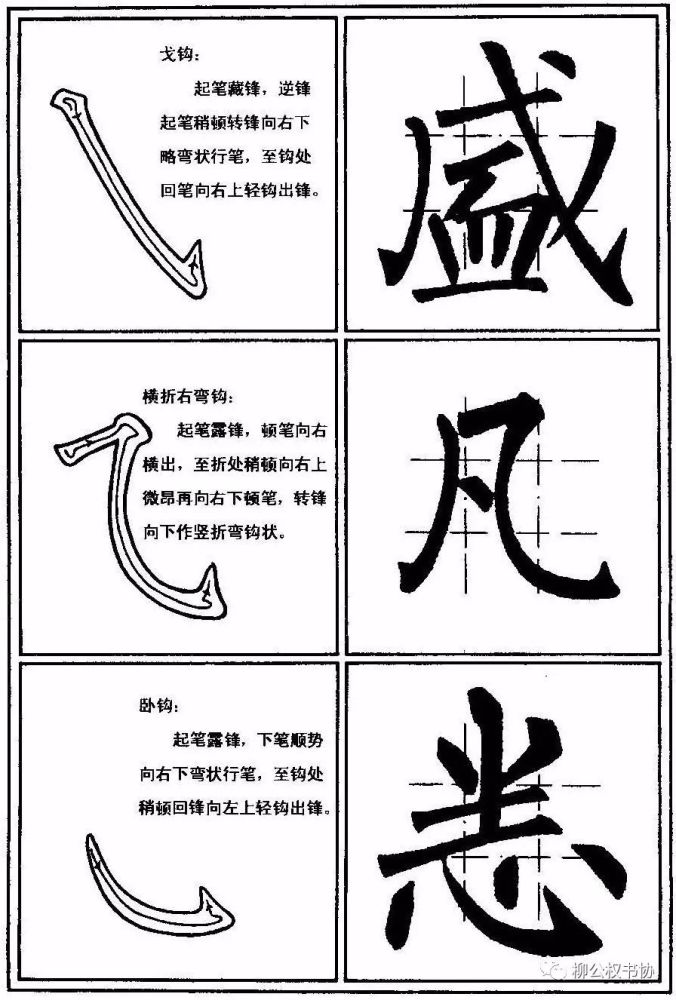 戈钩：
起笔藏锋，逆锋
起笔稍顿转锋向右下
略弯状行笔，至钩处
回笔向右上轻钩出锋。
盛
横折右弯钩：
起笔露锋，顿笔向右
横出，至折处稍顿向右上
微昂再向右下顿笔，转锋
向下作竖折弯钩状。
凡
卧钩：
起笔露锋，下笔顺势
向右下弯状行笔，至钩处
稍顿回锋向左上轻钩出锋。
柳公权书协